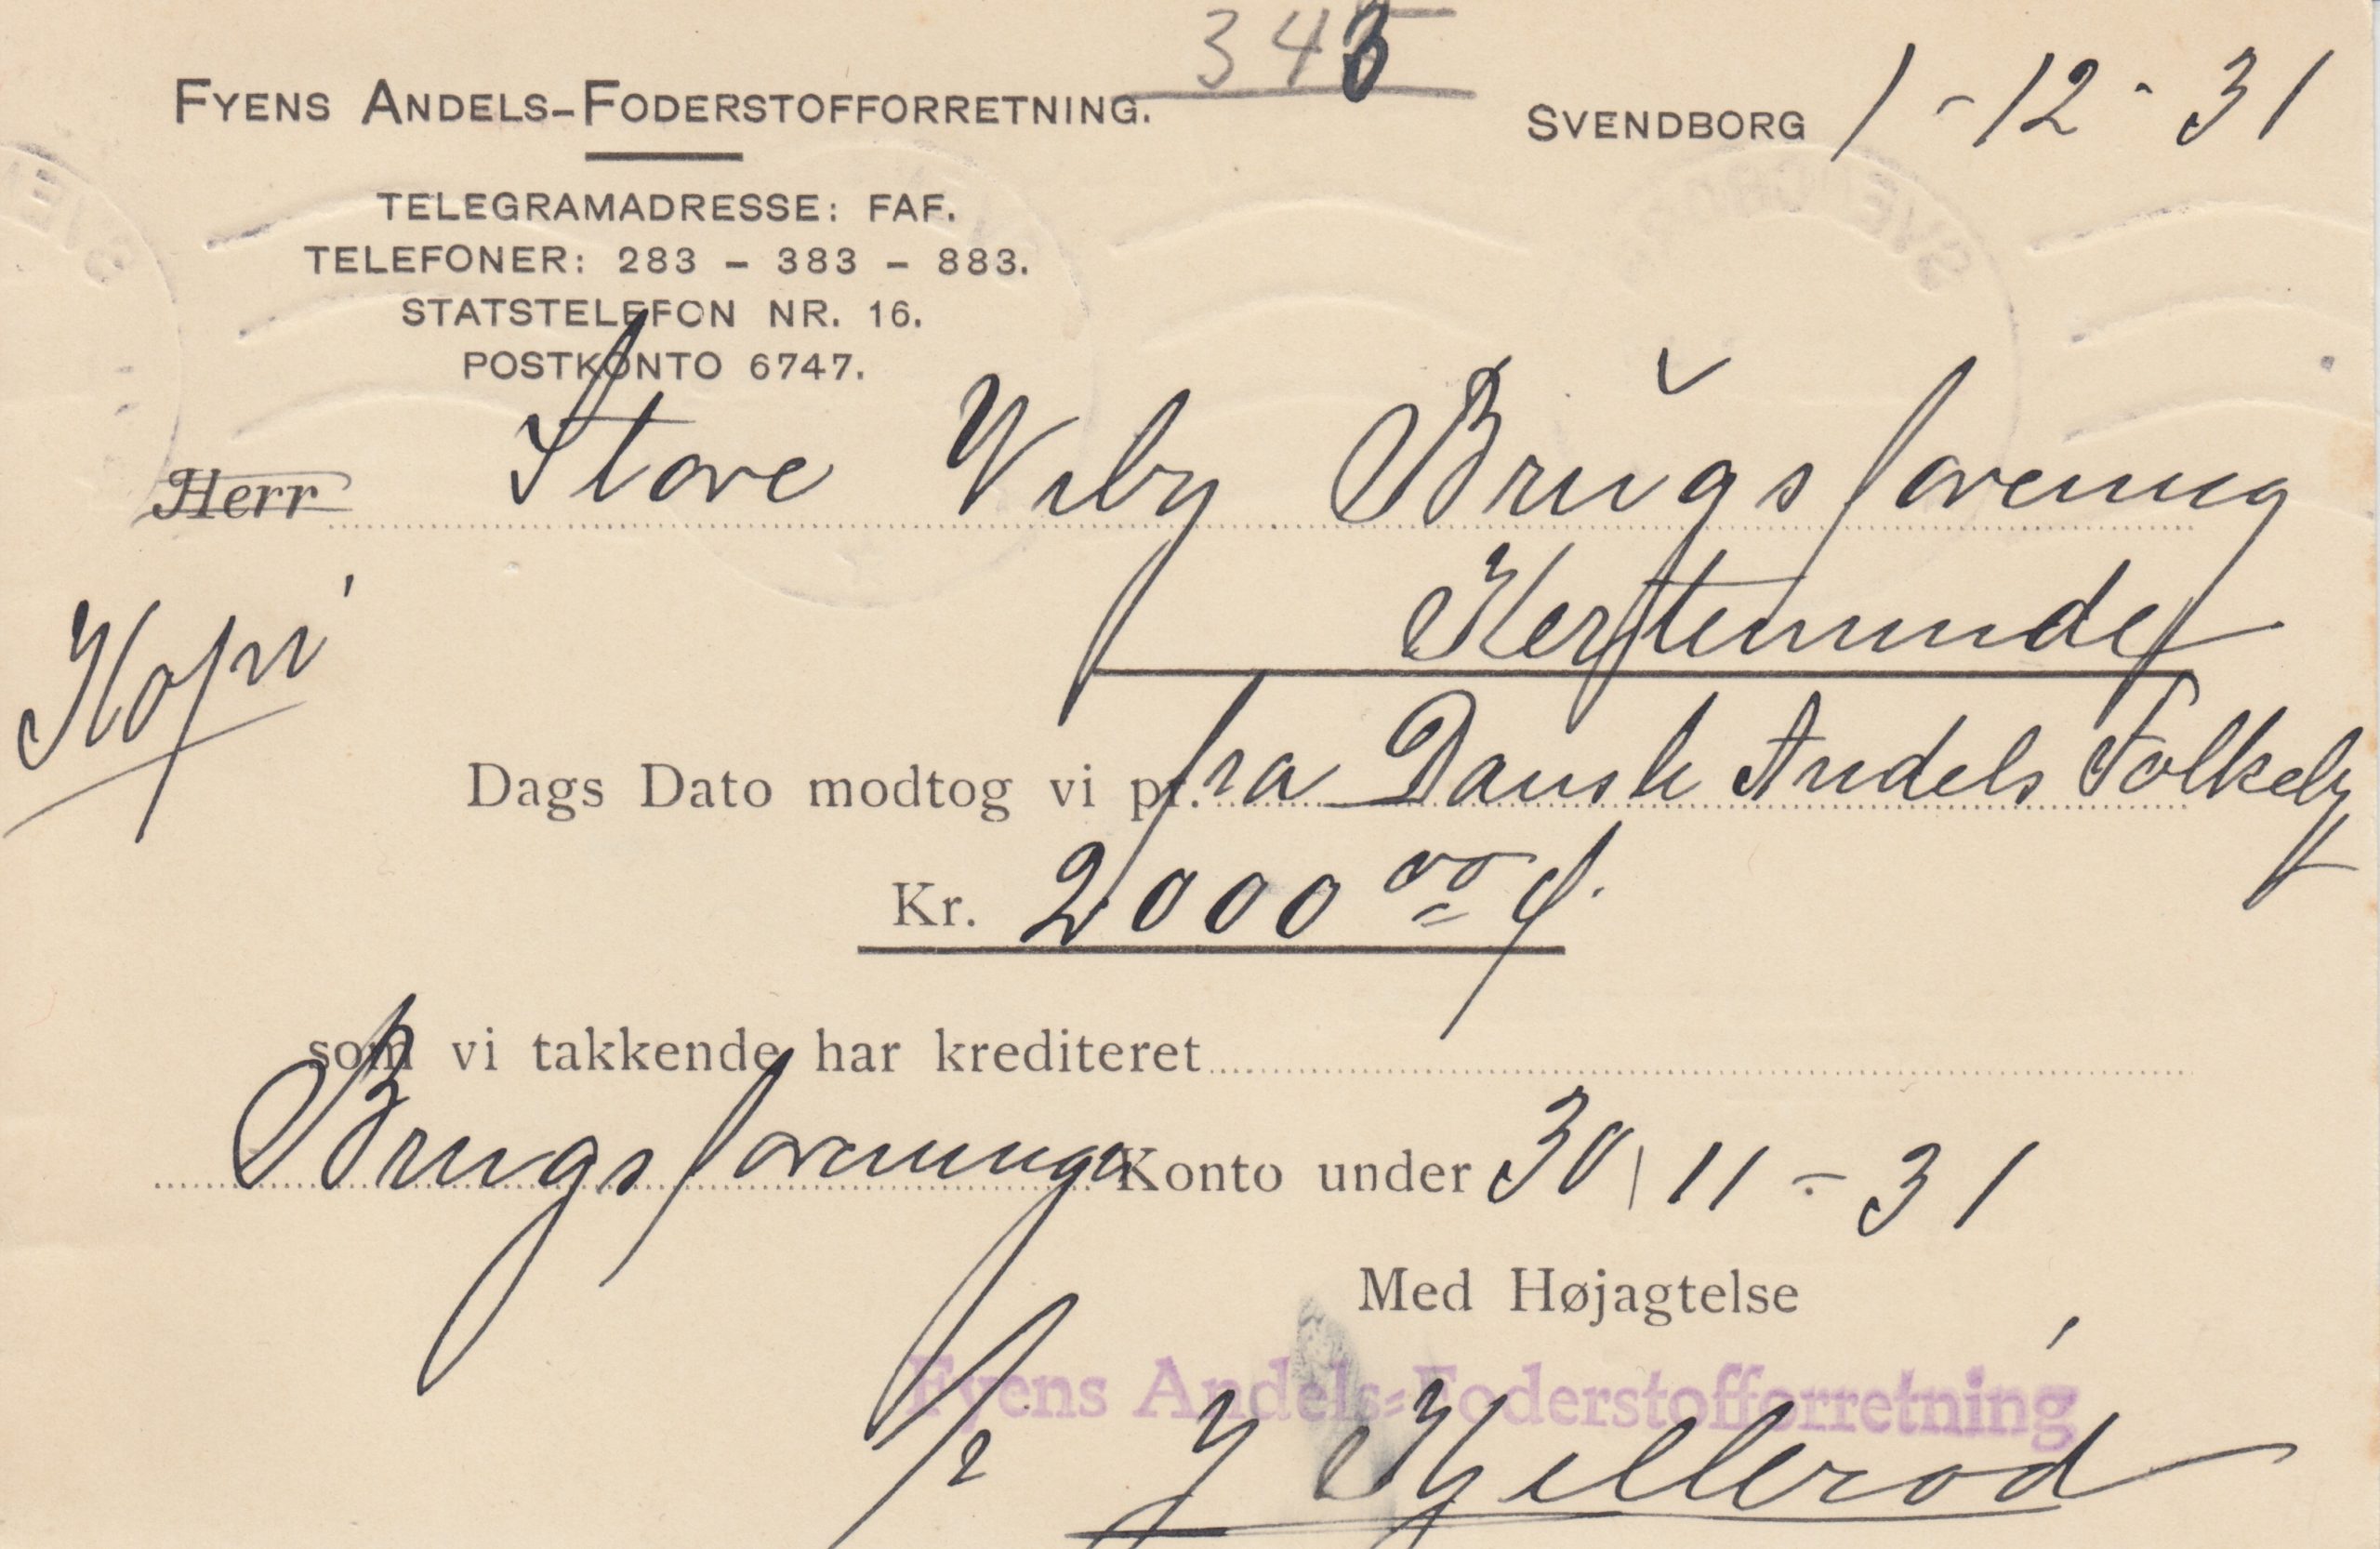 345
FYENS ANDELS-FODERSTOFFORRETNING.
SVENDBORG 1-12-31
TELEGRAMADRESSE: FAF.
TELEFONER: 283 - 383 - 883.
STATSTELEFON NR. 16.
POSTKONTO 6747.
Herr Store Viby Brugsforening
Kerteminde
Kopi
Dags Dato modtog vi pr. fra Dansk Andels Folkely
Kr. 2000 00
som vi takkende har krediteret
Brugsforenings Konto under 30/11-31
Med Højagtelse
Fyens Andels=Foderstofforretning